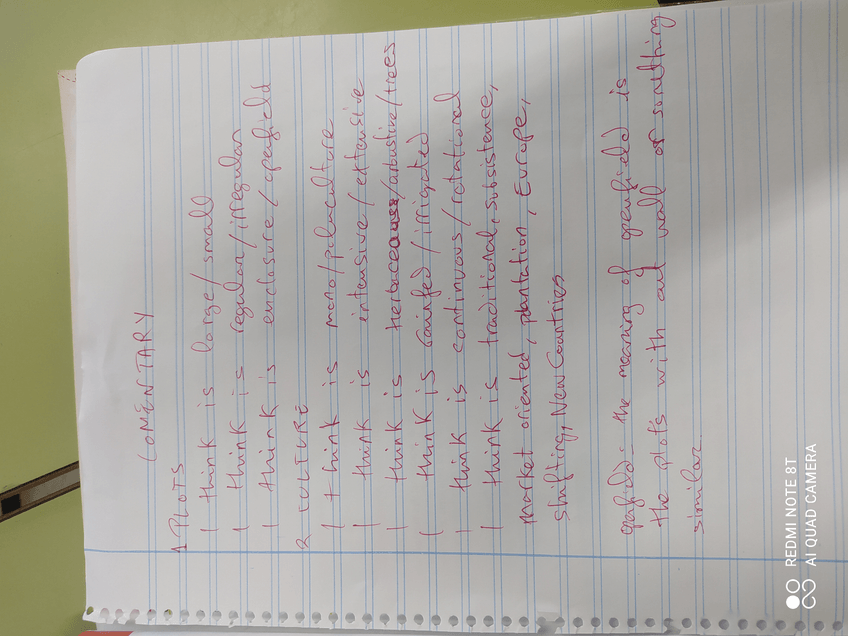 COMENTARY
1 PLOTS
I think is large/small
I think is regular/irregular
I think is enclosure/openfield
2 CULTURE
I think is mono/policulture
I think is intensive/extensive
I think is Herbaceauss/arbustive/trees
I think is rainfed/irrigated
I think is continuous/rotational
I think is traditional, subsistence,
market oriented, plantation, Europe,
shifting, New Countries
the meaning of openfield is
the plots with wall or something
similar
REDMI NOTE 8T
AI QUAD CAMERA